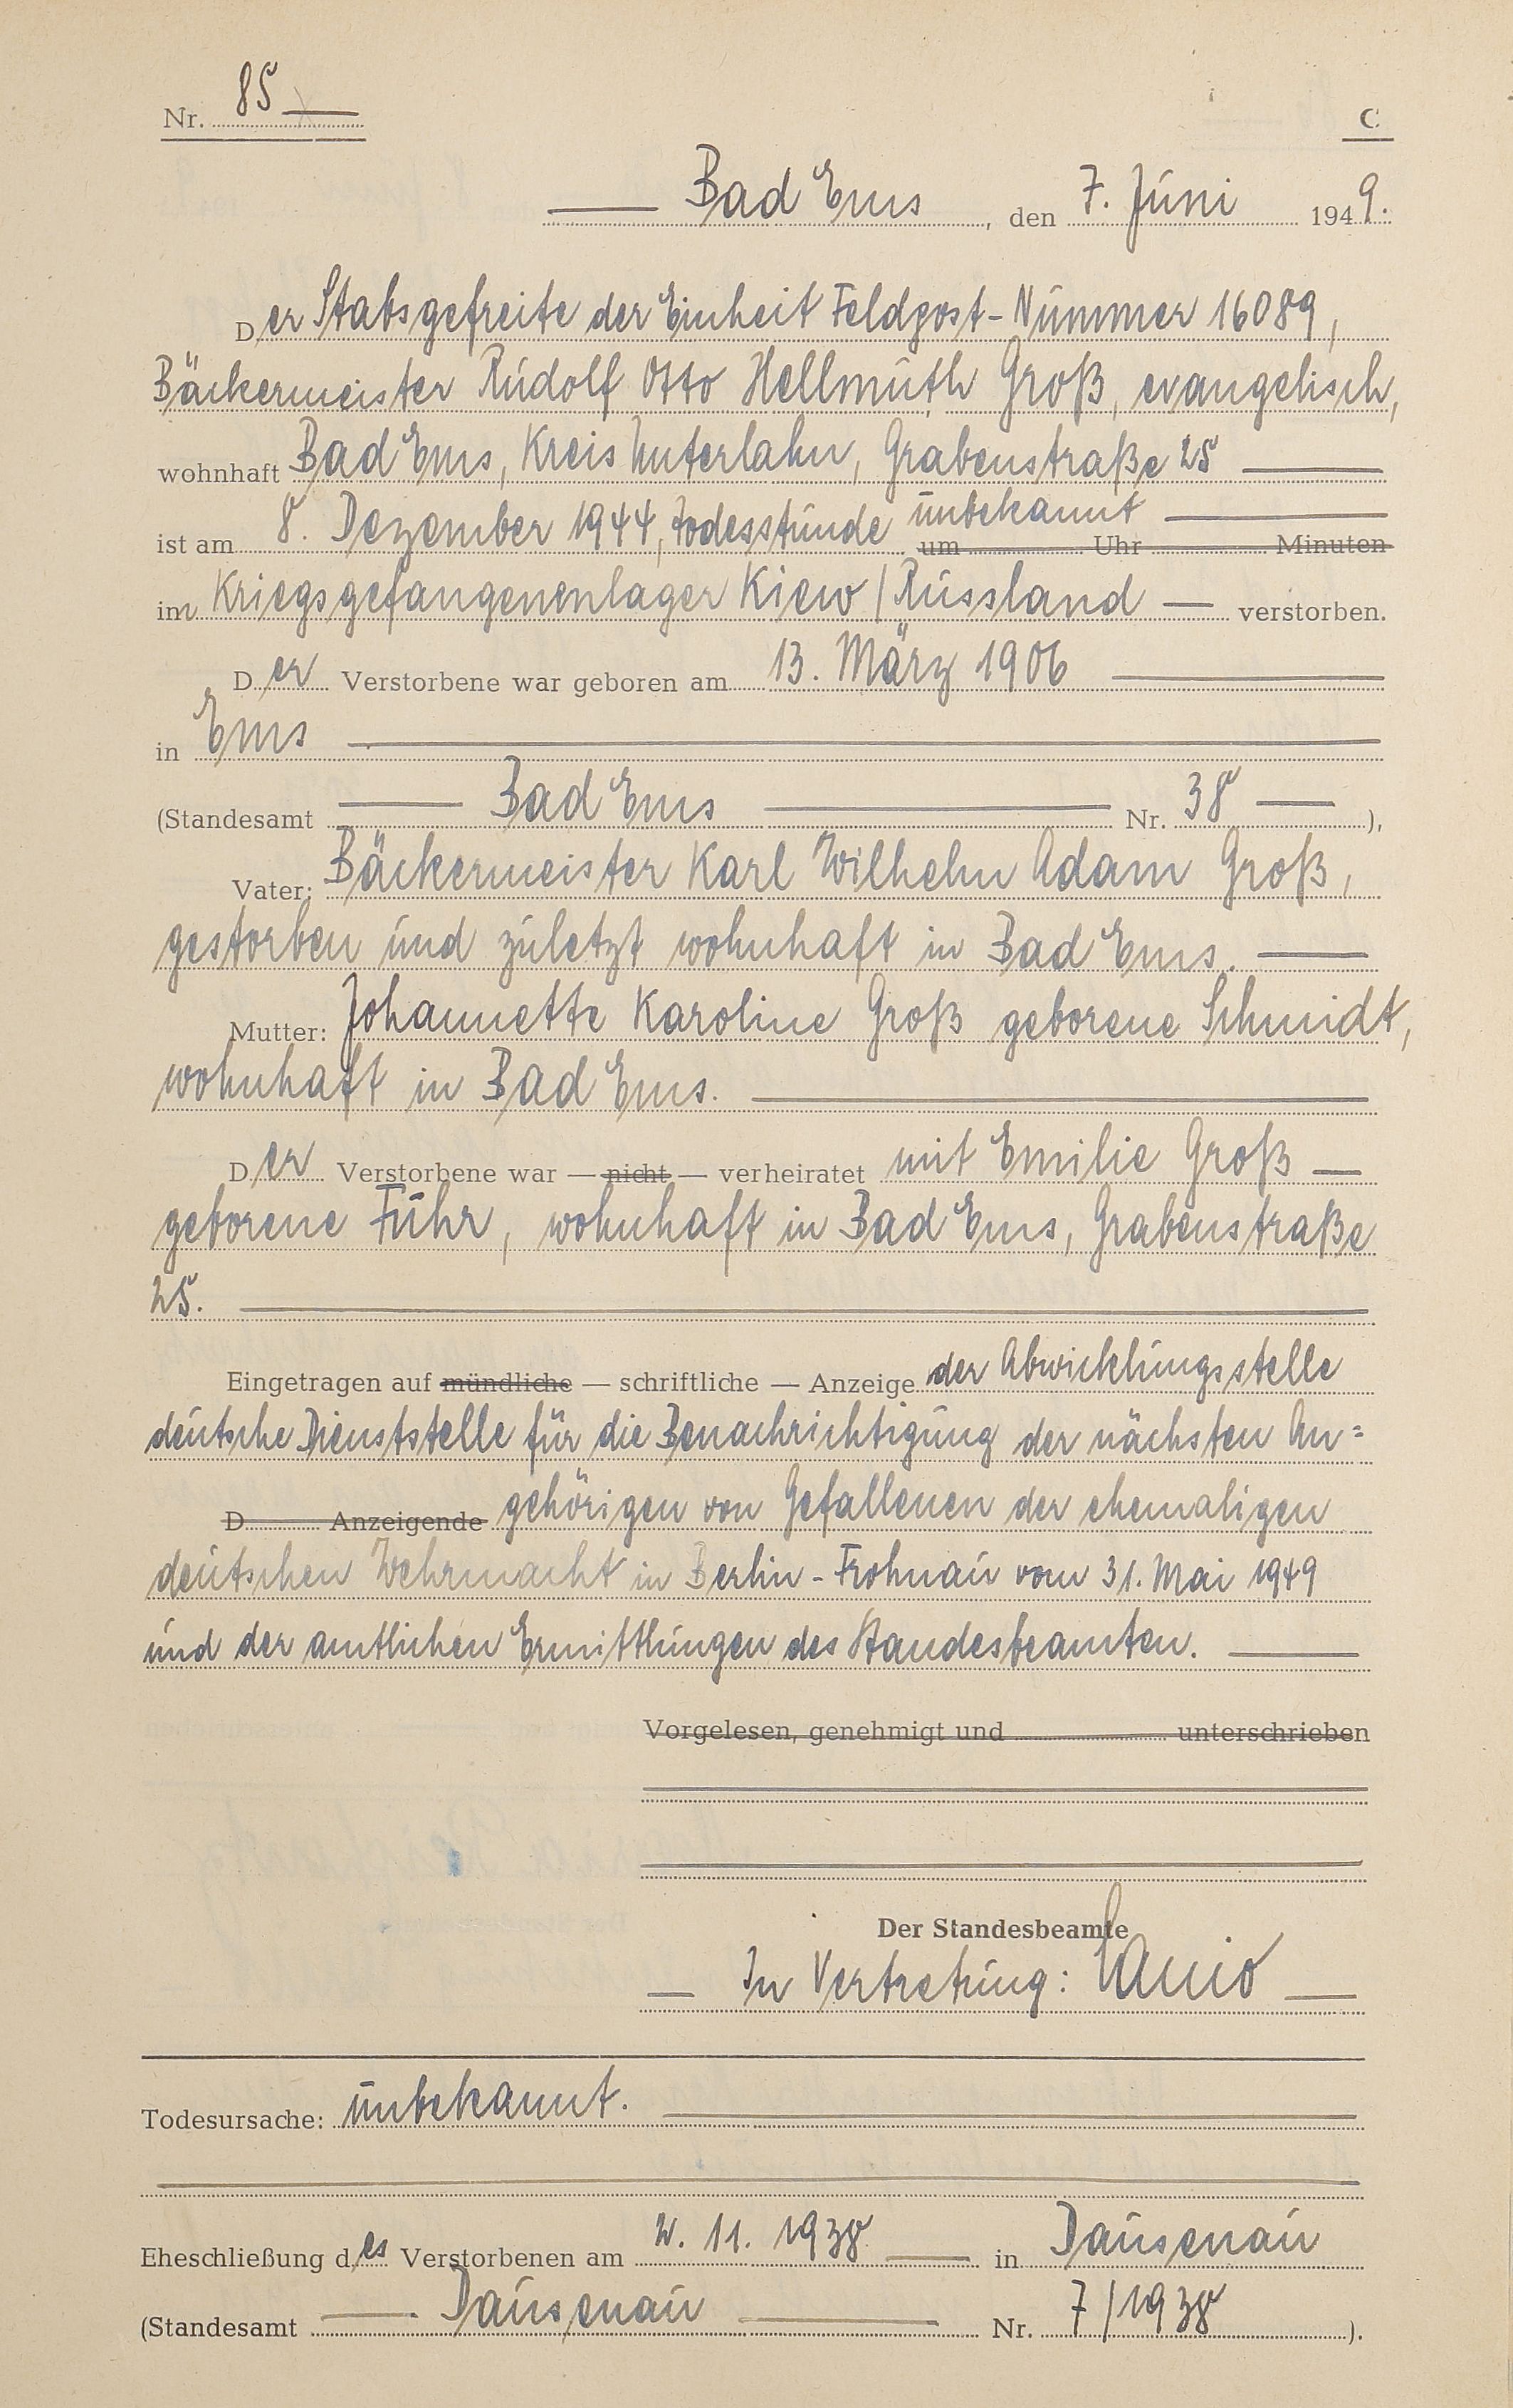 Nr. 85
C
Bad Ems, den 7. Juni 1949.
Der Stabsgefreite der Einheit Feldpost-Nummer 16089,
Bäckermeister Rudolf Otto Hellmuth Groß, evangelisch,
wohnhaft Bad Ems, Kreis Unterlahn, Grabenstraße 25
ist am 8. Dezember 1944, Todesstunde unbekannt um Uhr Minuten
im Kriegsgefangenenlager Kiew / Russland verstorben.
Der Verstorbene war geboren am 13. März 1906
in Ems
(Standesamt Bad Ems Nr. 38 ),
Vater: Bäckermeister Karl Wilhelm Adam Groß,
gestorben und zuletzt wohnhaft in Bad Ems.
Mutter: Johannette Karoline Groß geborene Schmidt,
wohnhaft in Bad Ems.
Der Verstorbene war — nicht — verheiratet mit Emilie Groß
geborene Fuhr, wohnhaft in Bad Ems, Grabenstraße
25.
Eingetragen auf mündliche — schriftliche — Anzeige der Abwicklungsstelle
deutsche Dienststelle für die Benachrichtigung der nächsten An=
D Anzeigende gehörigen von Gefallenen der ehemaligen
deutschen Wehrmacht in Berlin-Frohnau vom 31. Mai 1949
und der amtlichen Ermittlungen des Standesbeamten.
Vorgelesen, genehmigt und unterschrieben
Der Standesbeamte
In Vertretung: Lanio
Todesursache: unbekannt.
Eheschließung des Verstorbenen am 2. 11. 1938 in Dausenau
(Standesamt Dausenau Nr. 7/1938 ).